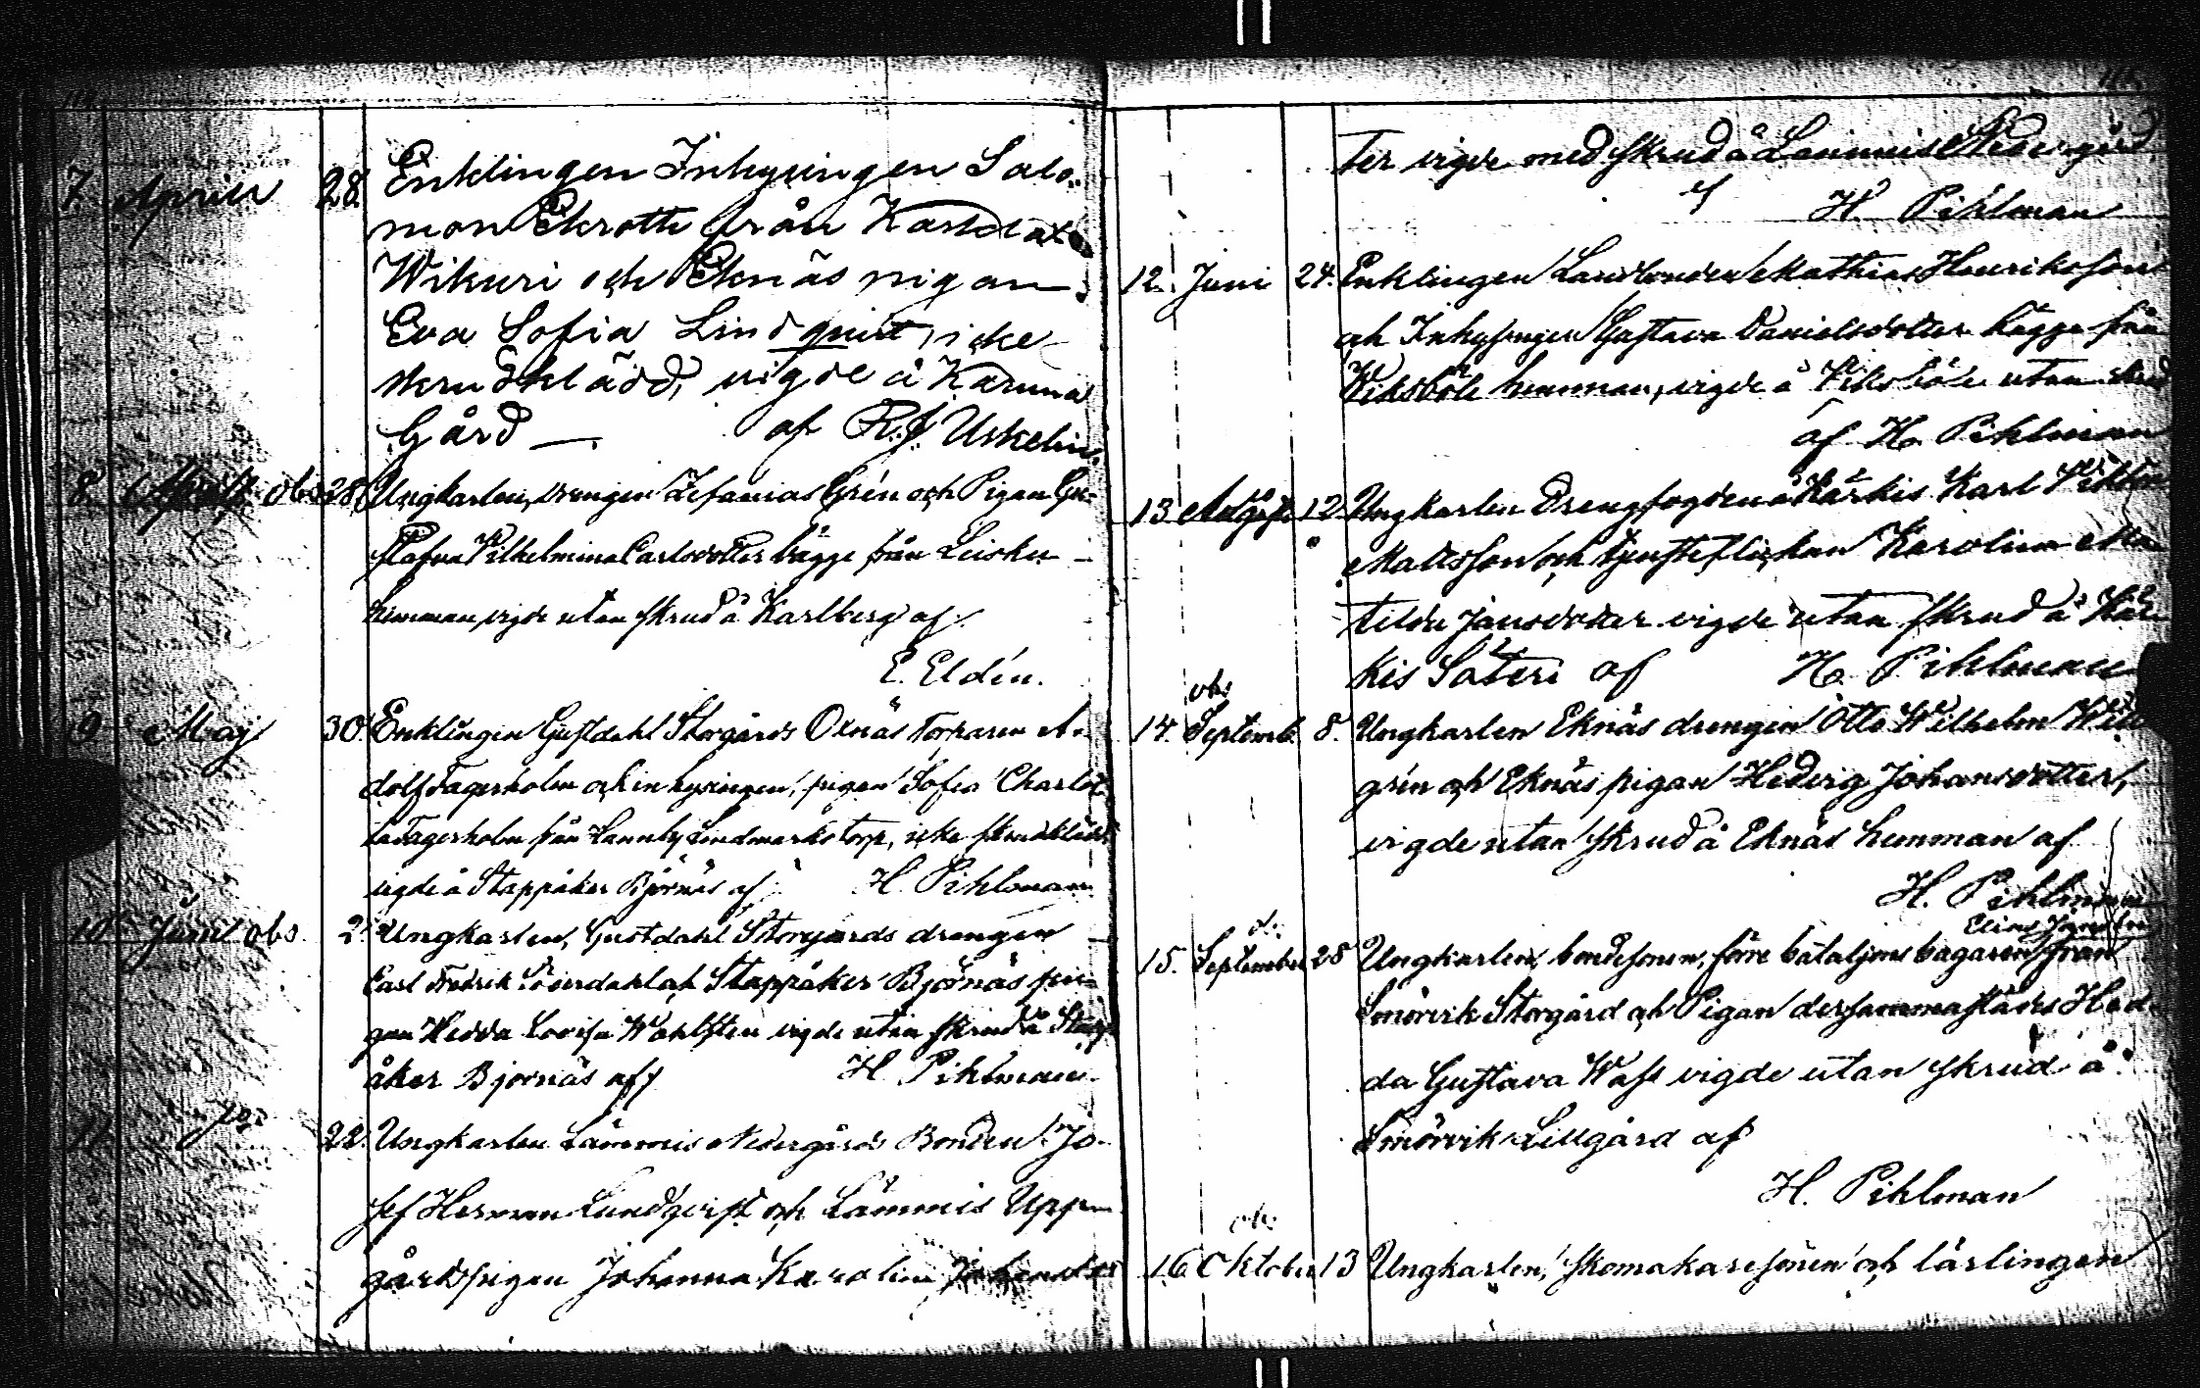 7. April 28. Enklingen Inhysingen Salo-
mon Ekroth från Karlstax
Wikuri och Eknäs pigan
Eva Sofia Lindqvist, icke
skrudklädd, vigde å Karuna
Gård — af R. J. Uskelin.
8. obs 28. Ungkarlen, drengen Zefanias Grén och Pigan Gu-
stafva Vilhelmina Carlsdotter bägge från Leisku
hemman, vigde utan skrud å Karlberg af
E. Eldén.
9. Maj 30. Enklingen Gustdahl Storgårds Oxnäs torparen A-
dolf Fagerholm och inhysingen, pigan Sofia Charlot-
ta Fagerholm från Lannby Lindmarks torp, icke skrudklädd
vigde å Stappåker Björnäs af H. Pihlman
10. Juni obs. 2. Ungkarlen, Gustdahl Storgårds drengen
Carl Fredrik Söderdahl och Stappåker Björnäs pi-
gan Hedda Lovisa Wahlsten vigde utan skrud å Stapp-
åker Björnäs af H. Pihlman.
11. 22. Ungkarlen Lämmis Nedergårds Bonden Jo-
sef Herman Lundqvist och Lämmis Upp-
gårds pigan Johanna Karolina
ter vigde med skrud å Lämmis Nedergård
af H. Pihlman
12. Juni 24. Enklingen Landbonden Mathias Henriksson
och Inhysingen Gustava Danielsdotter bägge från
Viksböle hemman, vigde å Viksböle utan skrud
af H. Pihlman
13 Augusti 12. Ungkarlen Drengfogden å Kärkis Karl Viktor
Mattsson och tjensteflickan Karolina Ma-
tilda Jansdotter vigde utan skrud å Kär-
kis Säteri af H. Pihlman
obs
14. Septemb. 8. Ungkarlen Eknäs drengen Otto Wilhelm Wid-
grén och Eknäs pigan Hedvig Johansdotter,
vigde utan skrud å Eknäs hemman af
H. Pihlman
Elias Jansson
15. September 28 Ungkarlen, bondesonen, förre bataljons bagaren från
Smörvik Storgård och Pigan dersammastädes Hed-
da Gustava Wass vigde utan skrud å
Smörvik Lillgård af
H. Pihlman
obs
16. Oktober 13 Ungkarlen, skomakaresonen och lärlingen